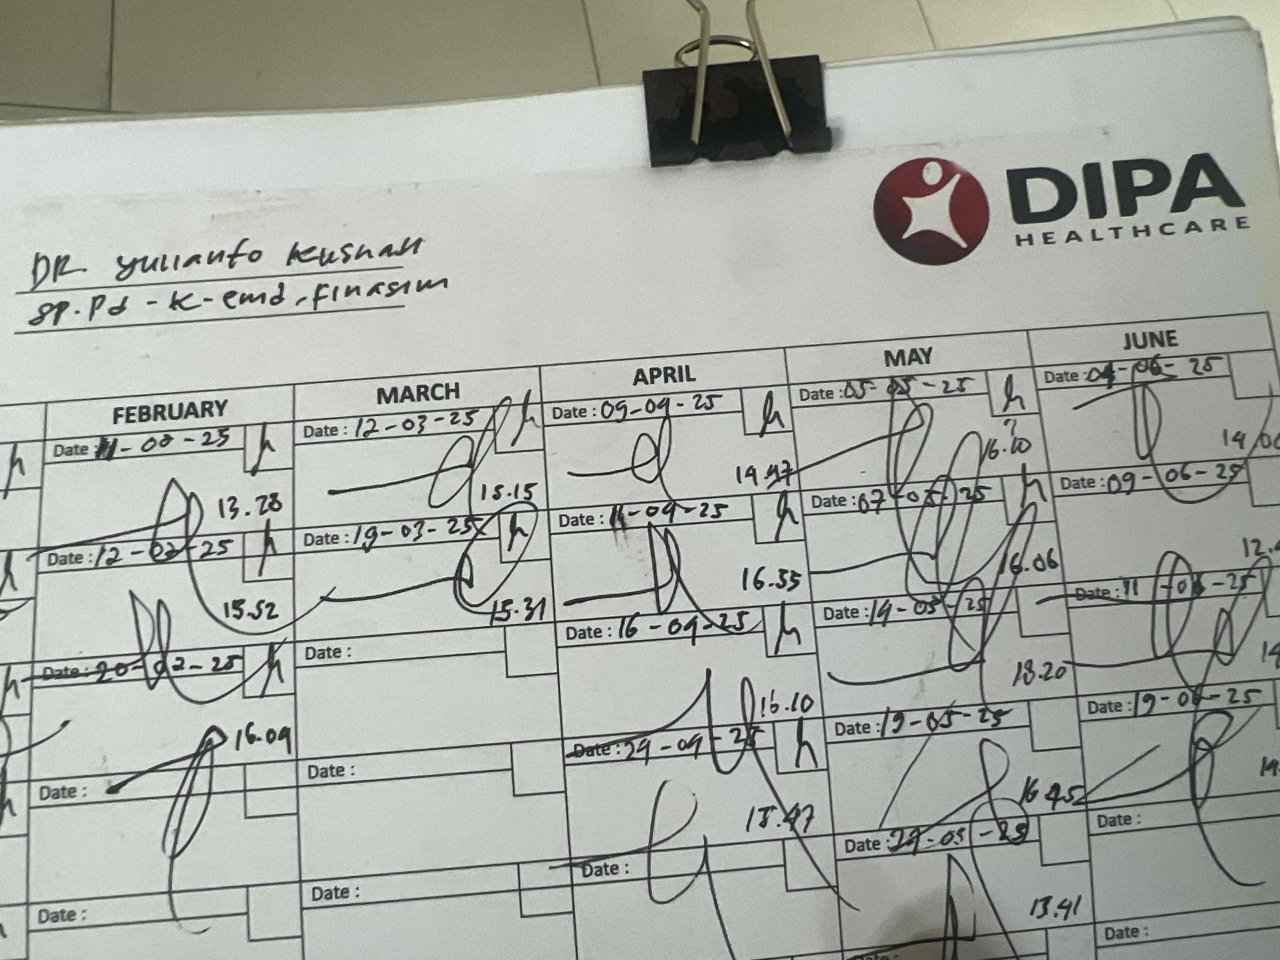 DIPA
HEALTHCARE
DR. Yulianto Kusnadi
SP.Pd - K-emd, Finasim
FEBRUARY MARCH APRIL MAY JUNE
Date : 12-03-25 h Date : 09-04-25 h Date : 05-05-25 h Date : 04-06-25
13.28 15.15 14.47 16.20 14.00
Date : 12-02-25 h Date : 19-03-25 h Date : 11-04-25 h Date : 07-05-25 h Date : 09-06-25
15.52 15.31 16.35 16.06
Date : 20-02-25 h Date : Date : 16-04-25 h Date : 14-05-25 Date : 11-06-25
16.09 16.10 18.20
Date : Date : Date : 29-04-25 h Date : 19-05-25 Date : 19-06-25
16.45
Date : Date : Date : Date : Date :
13.41
Date : Date :